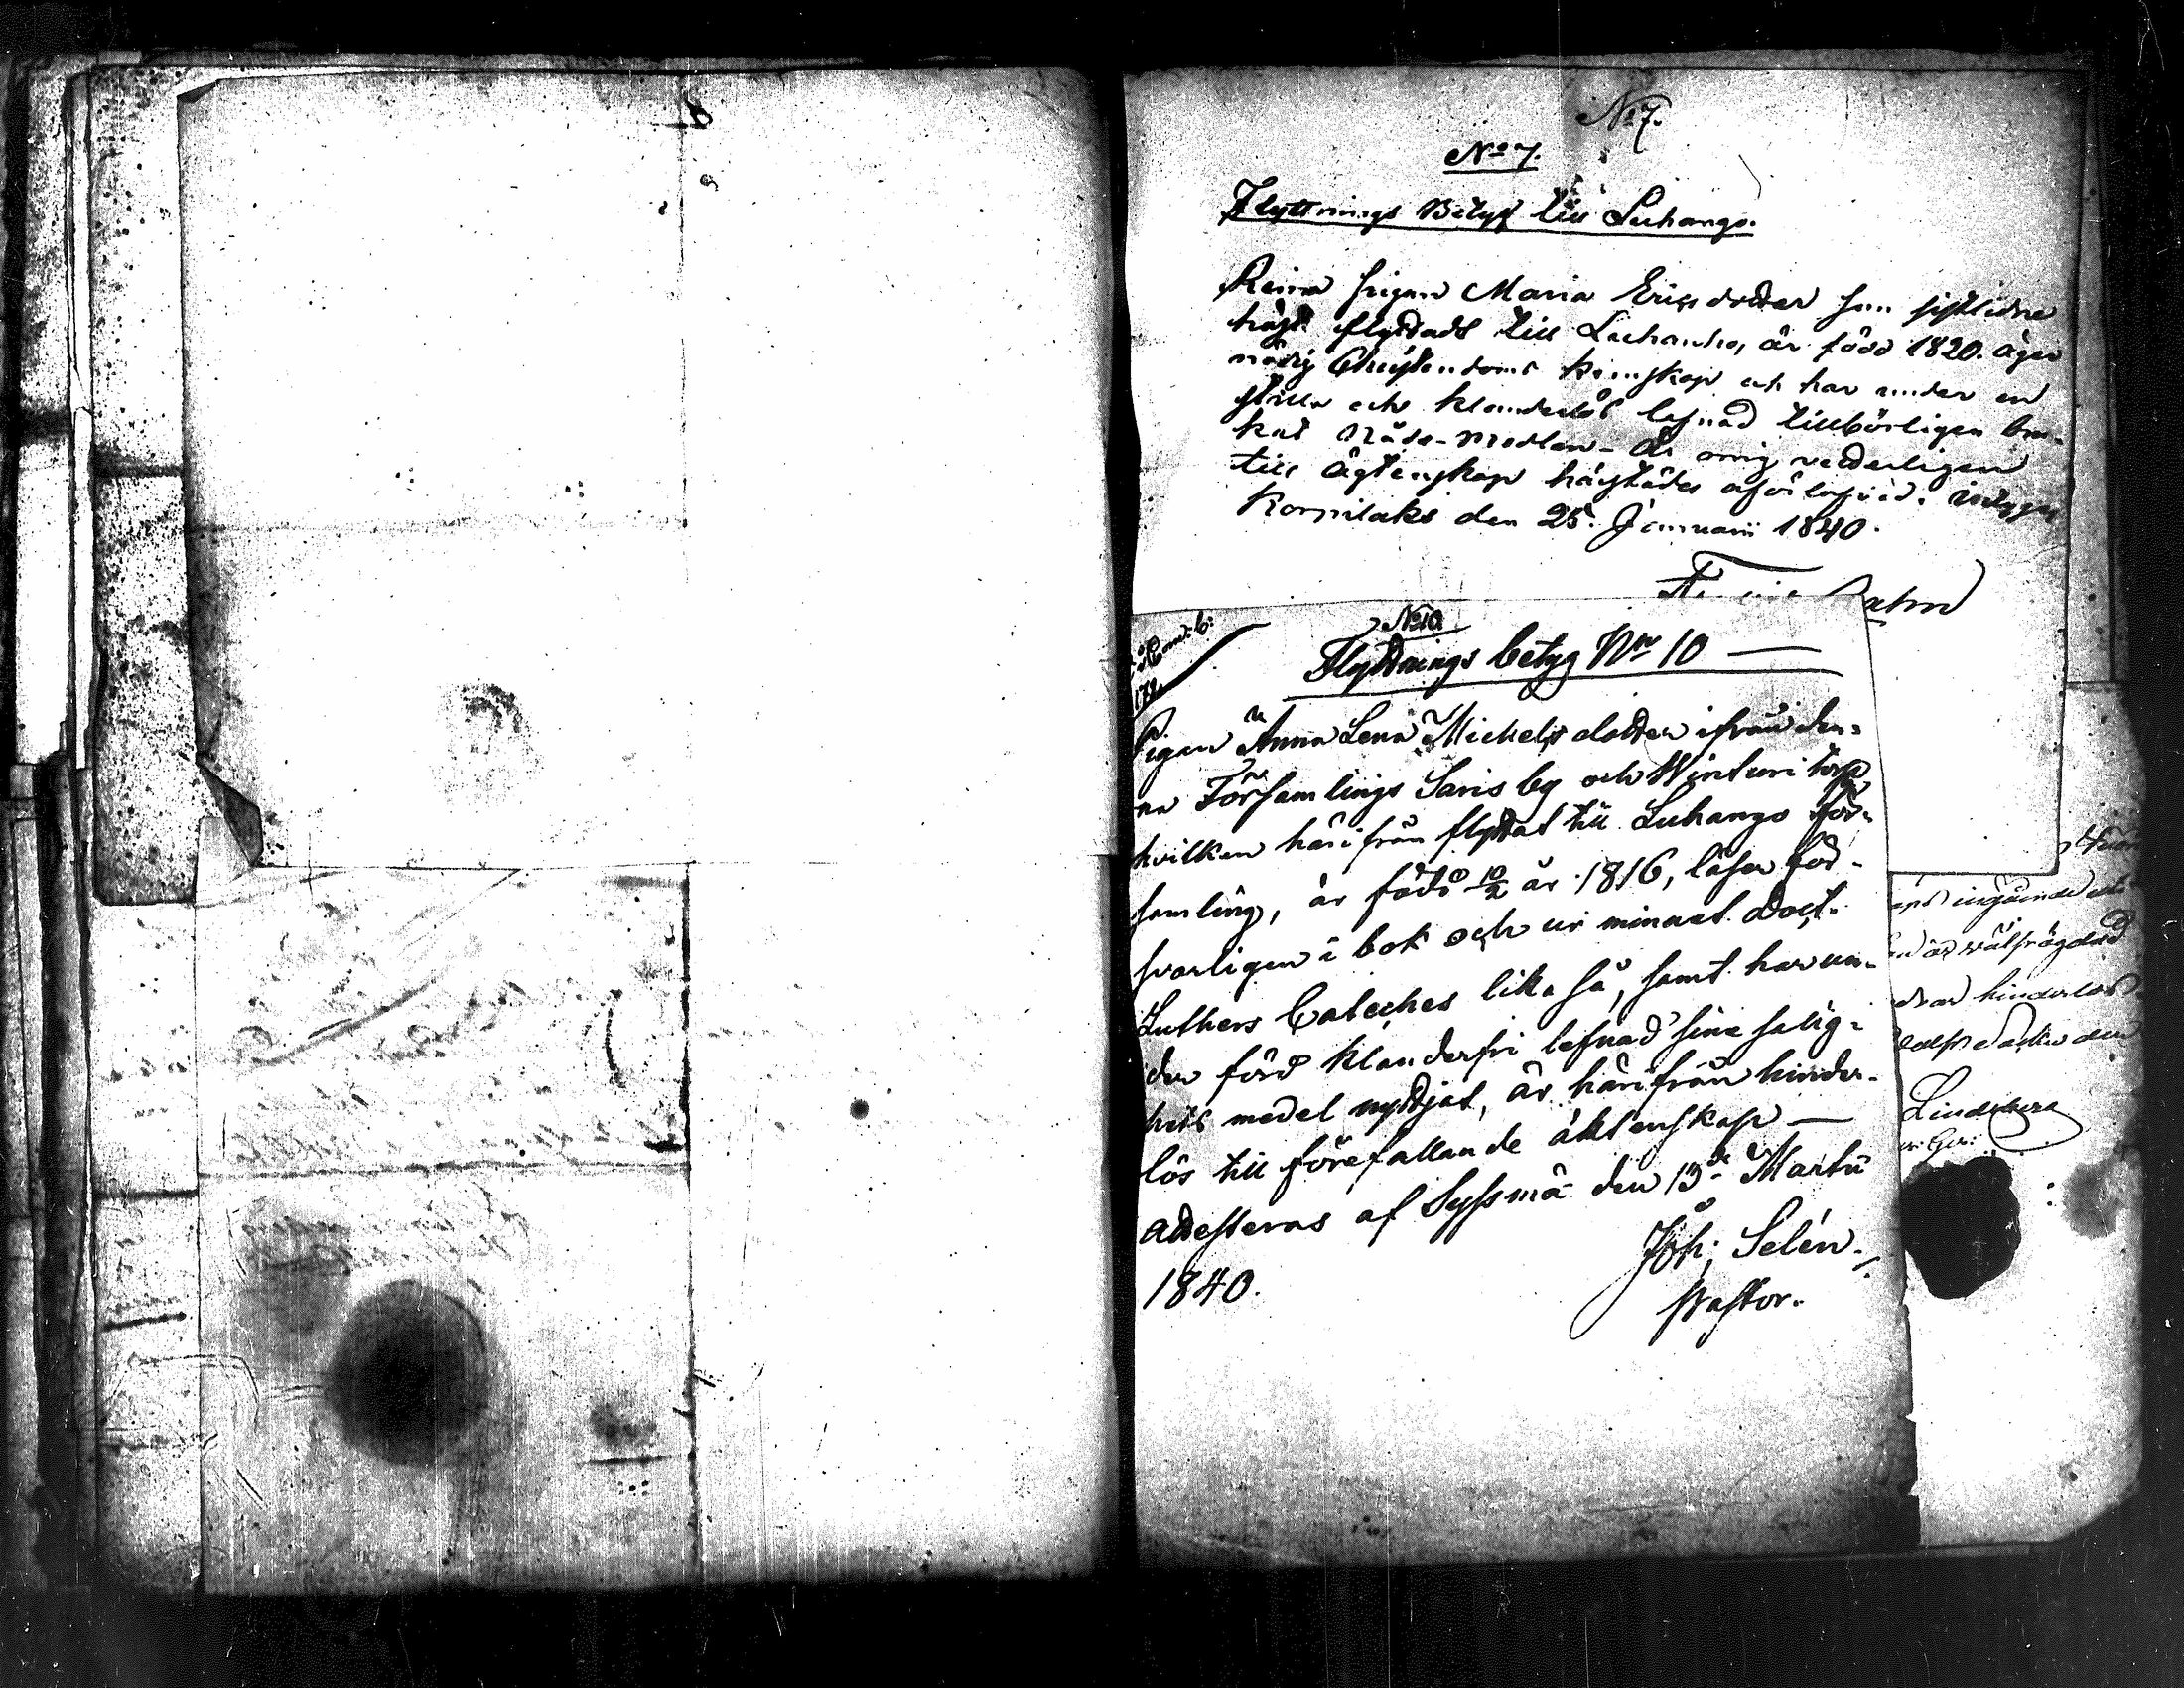 No 7.
No 7.
Flyttnings Betyg till Luhango.
Maria Ericsdotter som sistledne
höst flyttadt till Luhanho, är född 1820. äger
nödig Christendoms kunskap och har under en
stilla och klanderlös lefnad tillbörligen bru-
kat Nåde-Medlen - Är mig vetterligen
till ägtenskap
Korpilaks den 25. Januarii 1840.
No 10
Flyttnings betyg No 10
Pigan Anna Lena Michelsdotter ifrån den-
na Församlings Saris by och Wirituri torp
hvilken härifrån flyttat till Luhango för-
samling, är född 10/2 år 1816, läser för-
svarligen i bok och ur minnet Doct.
Luthers Cateches lika så, samt har un-
der förd klanderfri lefnad sine salig-
hets medel nyttjat, är härifrån hinder-
lös till förefallande äktenskap —
attesteras af Sysmä den 13de Martii
1840.
Joh. Selén.
Pastor.
ingående
är välfrägdad
hinderlös
den
Lindeberg